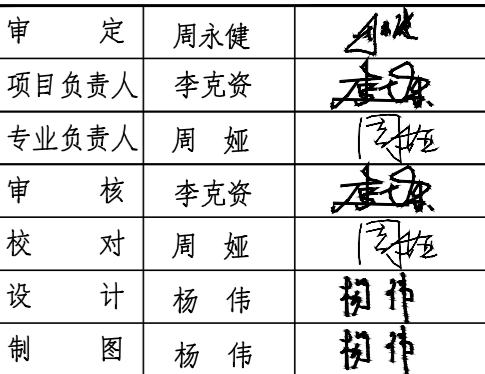 审 定 周永健 周永健
项目负责人 李克资
专业负责人 周 娅 周娅
审 核 李克资
校 对 周 娅 周娅
设 计 杨 伟 杨伟
制 图 杨 伟 杨伟